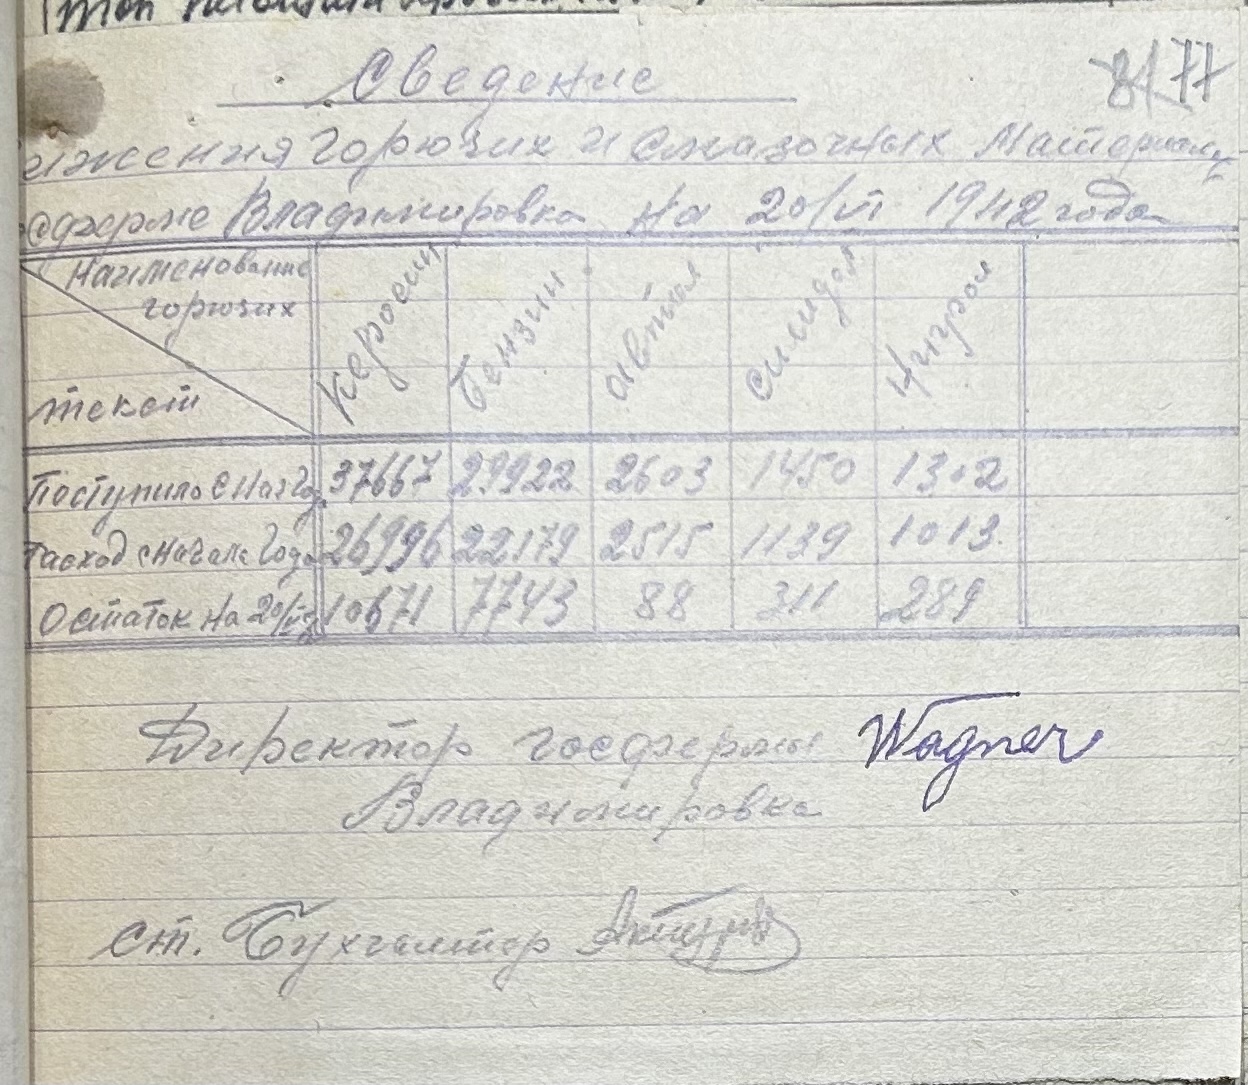 8/77
Сведение
вижения горючих и смазочных материалах
госферме Владимировка на 20/VI 1942 года
Наименование горючих
текст
Керосин Бензин автол солидол Нигрол
Поступило с нач Год. 37667 29922 2603 1450 1302
Расход с начала Года 26996 22179 2515 1139 1013
Остаток на 20/VI 10671 7743 88 311 289
Директор госфермы Wagner
Владимировка
ст. Бухгалтер